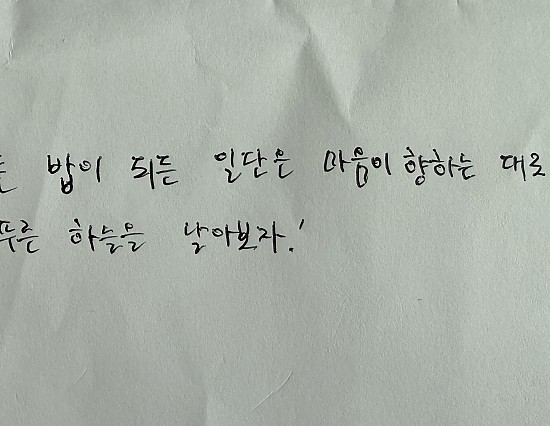 밥이 되든 일단은 마음이 향하는 대로
푸른 하늘을 날아보자!